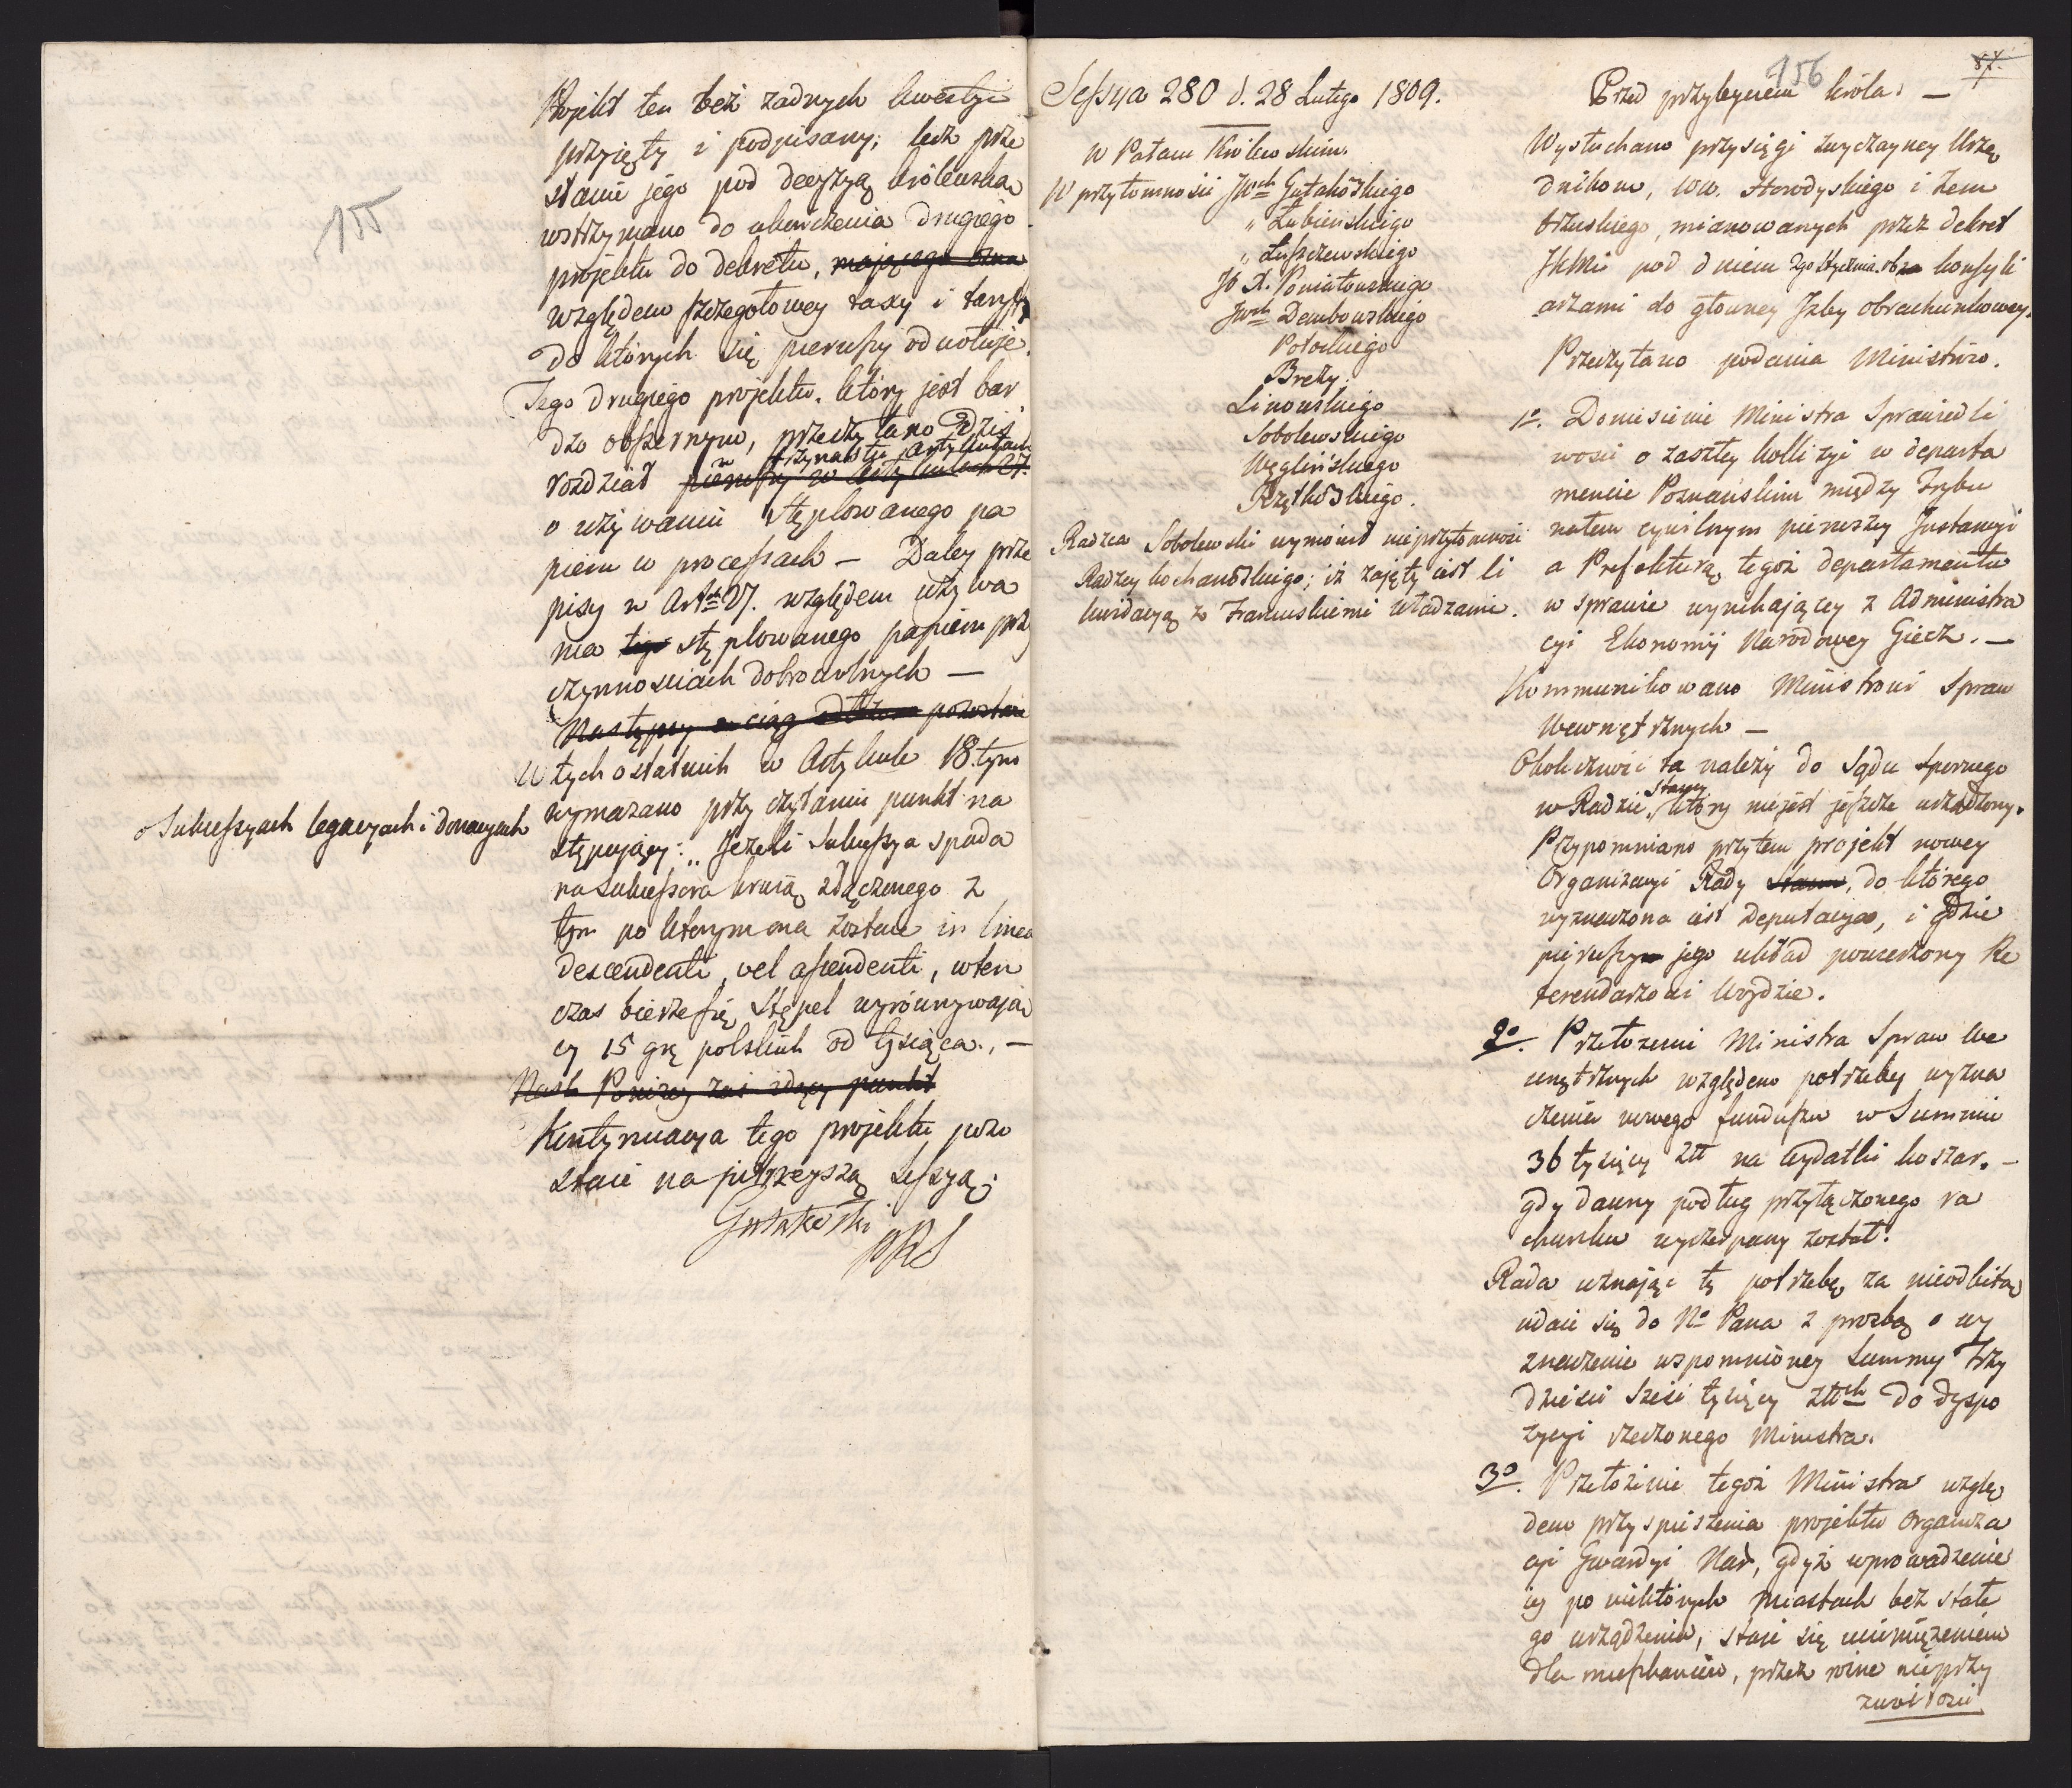 155
Projekt ten bez żadnych kwestyi
przyjęty i podpisany; lecz prze
słanie jego pod decyzyą królewską
wstrzymano do ukończenia drugiego
projektu do dekretu, mającego
względem szczegołowey taxy i taryfy
do których się pierwszy odwołuje.
Tego drugiego projektu, który jest bar
dzo obszernym, przeczytano dziś
w trzynastu Artykułach
rozdział pierwszy w Artykułach 27.
o używaniu stęplowanego pa
pieru w processach — Daley prze
pisy w Art. 27. względem używa
nia tego stęplowanego papieru przy
czynnościach dobrowolnych —
Następny ciąg pozostaie
W tych ostatnich w Artykule 18.tym
o Sukcessyach legacyach i donacyach
wymazano przy czytaniu punkt na
stępujący: „Jeżeli Sukcessya spada
na Sukcessora krwią złączonego z
tym po którym ona zostaie in linea
descendenti, vel ascendenti, wten
czas bierze się Stępel wyrównywają
cy 15 grz polskich od tysiąca., —
Nast Poniżey zaś idący punkt
Kontynuacya tego projektu pozo
staie na jutrzeyszą Sessyą.
Gutakowski
PRS
Sessya 280 d. 28 Lutego 1809.
w Pałacu Królewskim.
W przytomności JWch Gutakowskiego
„ Łubieńskiego
„ Łuszczewskiego
JO X. Poniatowskiego
JWch Dembowskiego
Potockiego
Brezy.
Linowskiego
Sobolewskiego
Węgleńskiego
Radzca Sobolewski wymówił nieprzytomność
Radzcy Kochanowskiego; iż zajęty iest li
kwidacyą z Francuskiemi władzami.
156
87.
Przed przybyciem króla. —
Wysłuchano przysięgi zwyczayney Urzę
dnikow, WW. Horodyskiego i Zem
brzuskiego, mianowanych przez dekret
JKMci pod dniem 2go Stycznia r b konsyli
arzami do głowney Izby obrachunkowey.
Przeczytano podania Ministrów.
1o. Doniesienie Ministra Sprawiedli
wości o zaszłey kollizyi w departa
mencie Poznańskim między Trybu
nałem cywilnym pierwszey Instancyi
a Prefekturą tegoż departamentu
w sprawie wynikającey z Administra
cyi Ekonomij Narodowey Giecz. —
Kommunikowano Ministrowi Spraw
Wewnętrznych —
Okoliczność ta należy do Sądu Spornego
Stanu
w Radzie, który nie jest jeszcze urządzony.
Przypomniano przytem projekt nowey
Organizacyi Rady Stanu, do którego
wyznaczona iest Deputacya, i gdzie
pierwszym jego układ powierzony Re
ferendarzowi Woydzie.
2o. Przełożenie Ministra Spraw We
wnętrznych względem potrzeby wyzna
czenia nowego funduszu w Summie
36 tysięcy złł na wydatki koszar. —
gdy dawny podług przyłączonego ra
chunku wyczerpany został.
Rada uznając tę potrzebę za nieodbitą
udaie się do No Pana z prozbą o wy
znaczenie wspomnioney Summy trzy
dzieści sześć tysięcy złłch do dyspo
zycyi rzeczonego Ministra.
3o. Przełożenie tegoż Ministra wzglę
dem przyspieszenia projektu Organiza
cyi Gwardyi Nar, gdyż wprowadzenie
iey po niektórych Miastach bez stałe
go urządzenia, staie się uciemiężeniem
dla mieszkańców, przez winę nieprzy
zwoitości